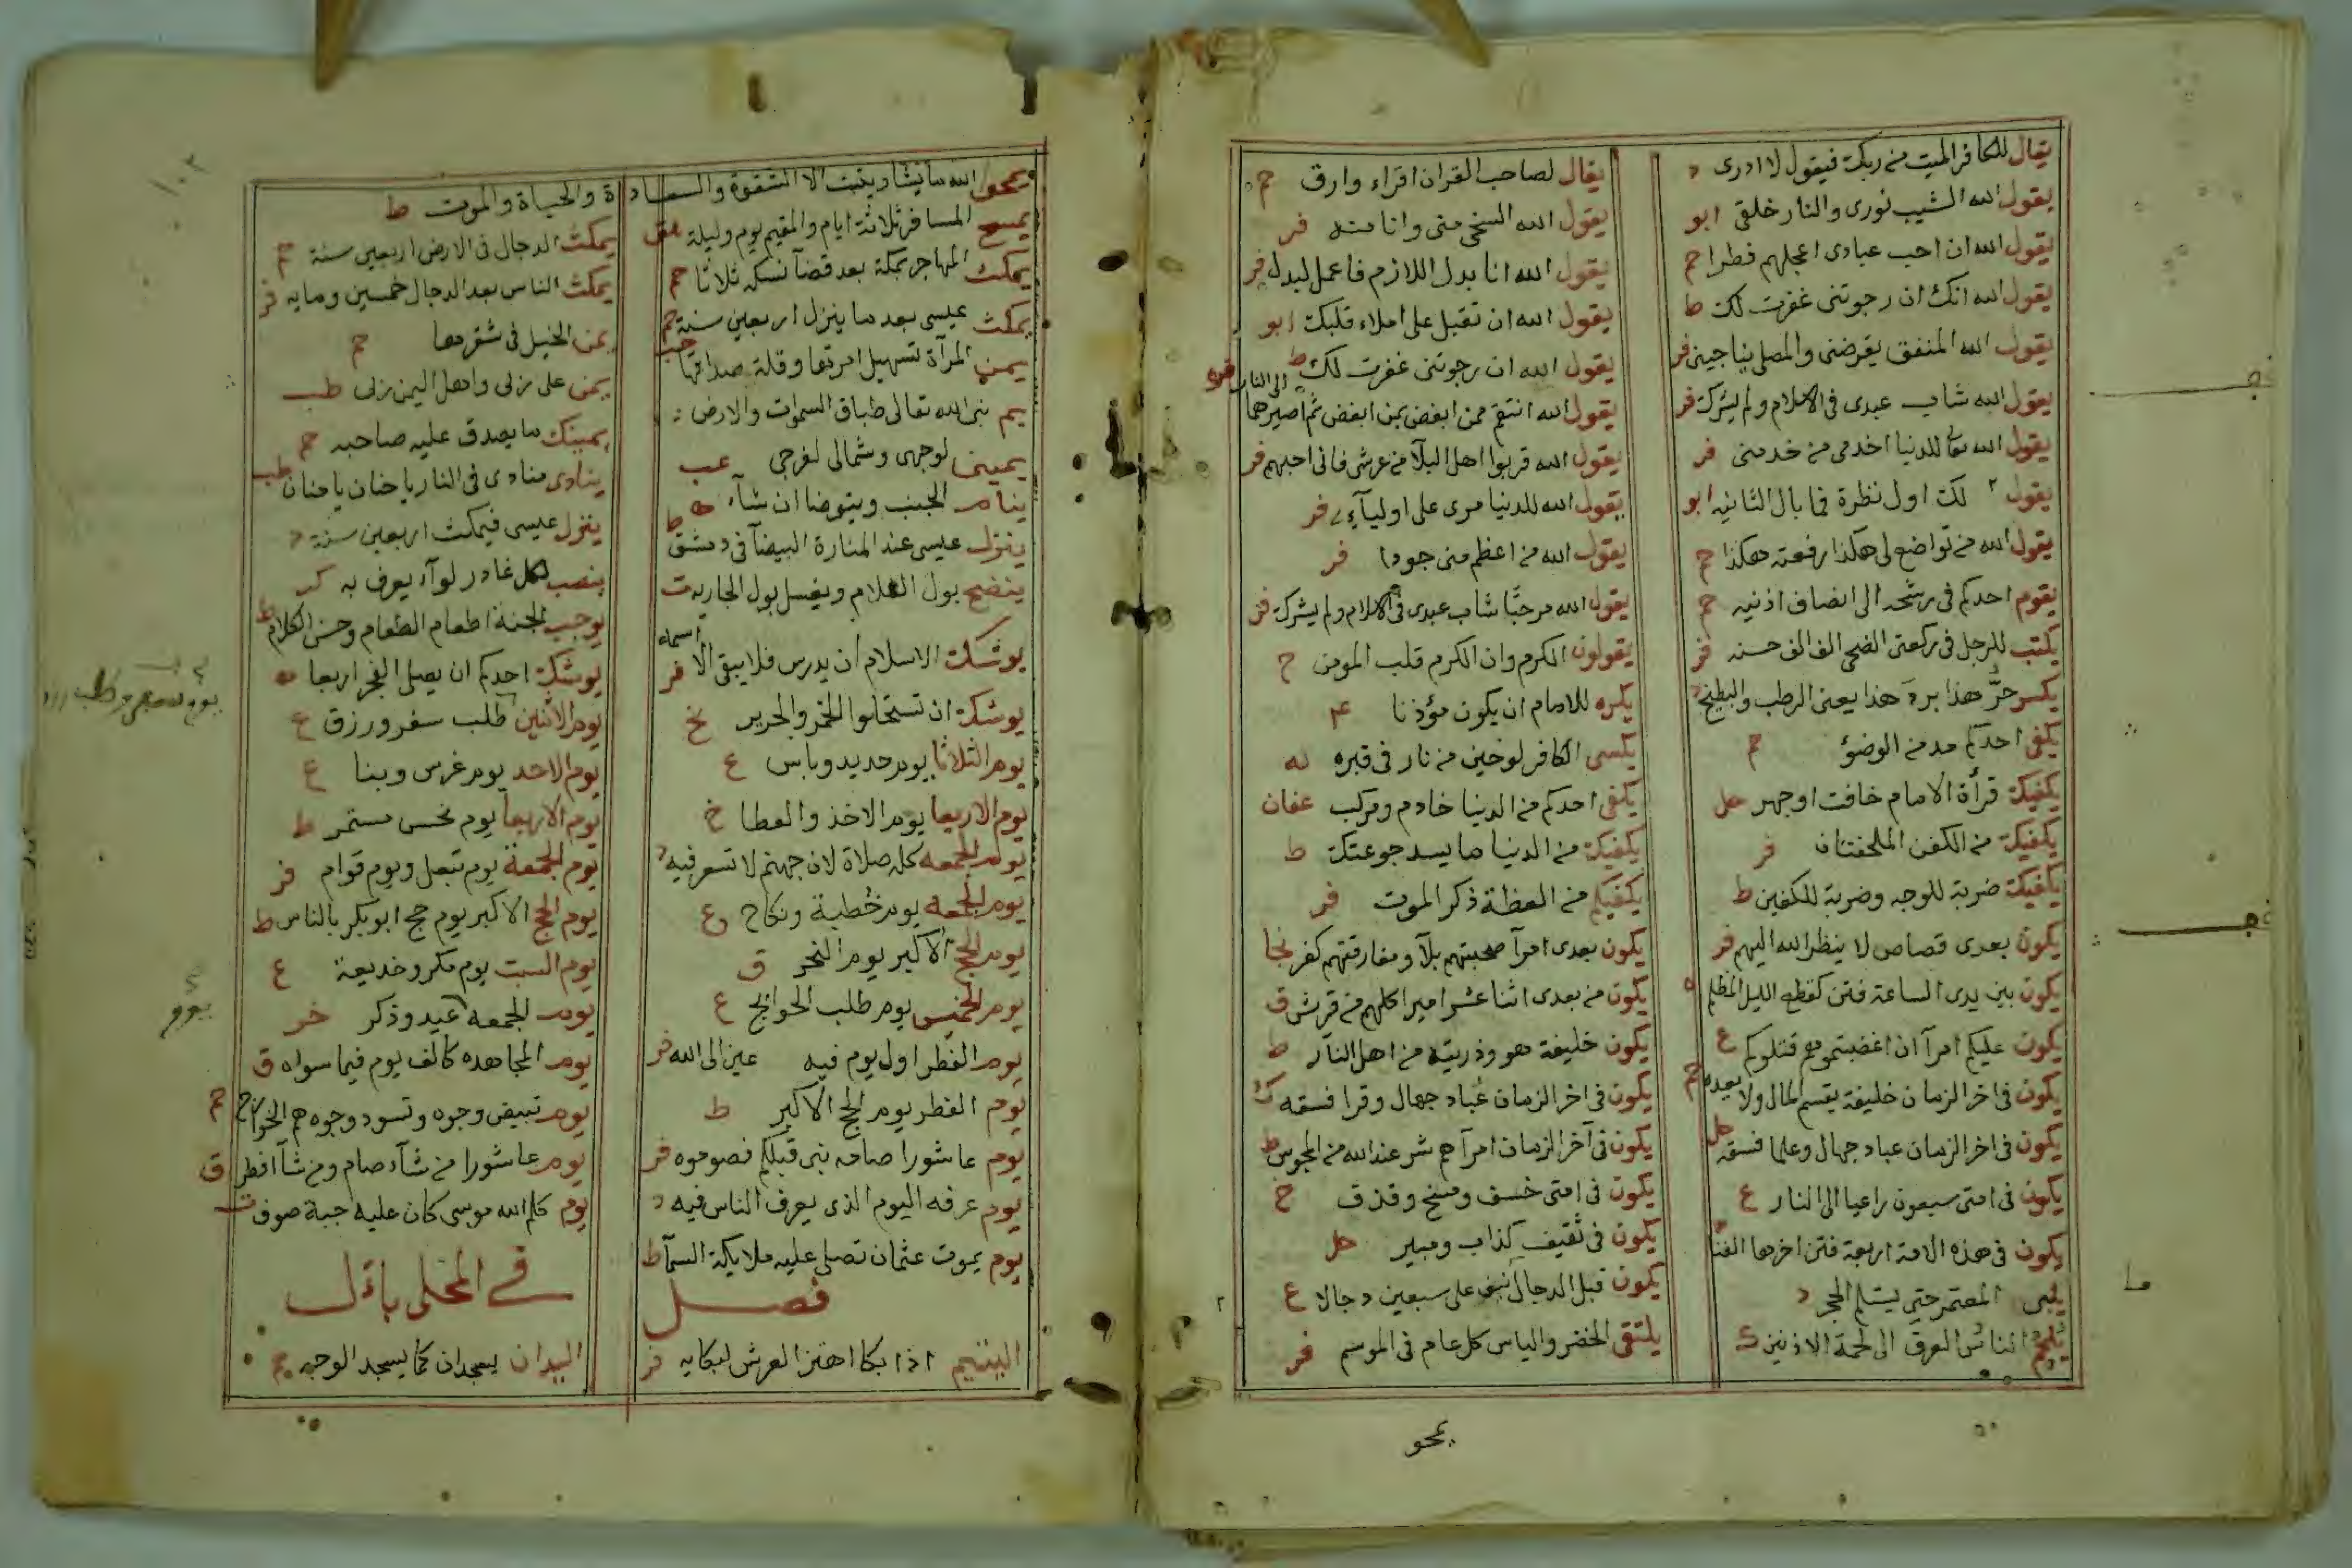 يقال للكافر الميت من ربك فيقول لا ادرى د
يقول الله الشيب نورى والنار خلقى ابو
يقول الله ان احب عبادى اعجلهم فطرا حم
يقول الله انك ان رجوتنى غفرت لك ط
يقول الله المنفق يقرضنى والمصلى يناجينى فر
يقول الله شاب عبدى فى الاسلام ولم يشرك فر
يقول الله تعا للدنيا اخدمى من خدمنى فر
يقول لك اول نظرة فما بال الثانيه ابو
يقول الله من تواضع لى هكذا رفعته هكذا حم
يقوم احدكم فى رشحه الى انصاف اذنيه حم
يكتب للرجل فى ركعتى الضحى الف الف حسنه فر
يكسر حرُّ هذا بردَ هذا يعنى الرطب والبطيخ
يكفى احدكم مد من الوضؤ حم
يكفيك قرأة الامام خافت او جهر حل
يكفيك من الكفن الملحفتان فر
يكفيك ضربة للوجه وضربة للكفين ط
يكون بعدى قصاص لا ينظر الله اليهم فر
يكون بين يدى الساعة فتن كقطع الليل المظلم
يكون عليكم امرآ ان اغضبتموهم قتلوكم ع
يكون فى اخر الزمان خليفة يقسم المال ولا يعده حم
يكون فى اخر الزمان عباد جهال وعلما فسقه حل
يكون فى امتى سبعون راعيا الى النار ع
يكون فى هذه الامة اربعة فتن اخرها الفنا
يلبى المعتمر حتى يستلم الحجر د
يلجم الناس العرق الى لحمة الاذنين ك
يقال لصاحب القران اقراء وارق حم
يقول الله السخى منى وانا منه فر
يقول الله انا بدل اللازم فاعمل لبدل فر
يقول الله ان تقبل على املاء قلبك ابو
يقول الله ان رجوتنى غفرت لك ط
يقول الله انتقم ممن ابغض بمن ابغض ثم اصيرها الى النار
يقول الله قربوا اهل البلآ من عرشى فانى احبهم فر
يقول الله للدنيا مرى على اوليآءى فر
يقول الله من اعظم منى جودا فر
يقول الله مرحبًا شاب عبدى فى الاسلام ولم يشرك فر
يقولون الكرم وان الكرم قلب المومن ح
يكره للامام ان يكون مؤذنا
يكسى الكافر لوحين من نار فى قبره
يكفى احدكم من الدنيا خادم ومركب عفان
يكفيك من الدنيا ما يسد جوعتك ط
يكفيكم من العظة ذكر الموت فر
يكون بعدى امرآ صحبتهم بلآ ومفارقتهم كفر نجا
يكون من بعدى اثنا عشر اميرا كلهم من قريش ق
يكون خليفة هو وذريته من اهل النار ط
يكون فى اخر الزمان عُباد جهال وقرا فسقه ك
يكون فى آخر الزمان امرآ هم شر عند الله من المجوس ط
يكون فى امتى خسف ومسخ وقذف ح
يكون فى ثقيف كذاب ومبير حل
يكون قبل الدجال نيف على سبعين دجالا ع
يلتقى الخضر والياس كل عام فى الموسم فر
يمحو
يمحو الله ما يشاء ويثبت الا الشقوة والسعادة والحياة والموت ط
يمسح المسافر ثلاثة ايام والمقيم يوم وليلة
يمكث المهاجر بمكة بعد قضآ نسكه ثلاثا حم
يمكث عيسى بعد ما ينزل اربعين سنة حم
يمن المرآة تسهيل امرتها وقلة صداقها حب
يم بنى الله تعالى طباق السموات والارض
يمينى لوجهى وشمالى لفرجى عب
ينام الجنب ويتوضا ان شآء ط
ينزل عيسى عند المنارة البيضآ فى دمشق
ينضح بول الغلام ويغسل بول الجاريه ت
يوشك الاسلام ان يدرس فلا يبقى الا اسماء فر
يوشك ان تستحلوا الخمر والحرير خ
يوم الثلاثا يوم حديد وباس ع
يوم الاربعا يوم الاخذ والعطا خ
يوم الجمعه كله صلاة لان جهنم لا تسعر فيه د
يوم الجمعه يوم خطبة ونكاح ع
يوم الحج الاكبر يوم النحر ق
يوم الخميس يوم طلب الحوايج ع
يوم الفطر اول يوم فيه عين الى الله فر
يوم الفطر يوم الحج الاكبر ط
يوم عاشورا صامه نبى قبلكم فصوموه فر
يوم عرفه اليوم الذى يعرف الناس فيه د
يوم يموت عثمان تصلى عليه ملايكة السمآ ط
فصل
اليتيم اذا بكا اهتز العرش لبكايه فر
يمكث الدجال فى الارض اربعين سنة حم
يمكث الناس بعد الدجال خمسين ومايه فر
يمن الخيل فى شقرها حم
يمن على نزلى واهل اليمن نزلى طب
يمينك ما يصدق عليه صاحبه حم
ينادى منادى فى النار يا حنان يا منان طب
ينزل عيسى فيمكث اربعين سنة د
ينصب لكل غادر لوآء يعرف به كر
يوجب الجنة اطعام الطعام وحسن الكلام ط
يوشك احدكم ان يصلى الفجر اربعا
يوم الاثنين طلب سفر ورزق ع
يوم الاحد يوم غرس وبنا ع
يوم الاربعا يوم نحس مستمر ط
يوم الجمعة يوم تبعل ويوم قوام فر
يوم الحج الاكبر يوم حج ابو بكر بالناس ط
يوم السبت يوم مكر وخديعة ع
يوم الجمعه عيد وذكر خر
يوم المجاهده كالف يوم فيما سواه ق
يوم تبيض وجوه وتسود وجوه هم الخوارج حم
يوم عاشورا من شآء صام ومن شآ افطر ق
يوم كلم الله موسى كان عليه جبة صوف ت
فى المحلى بال
اليدان يسجدان كما يسجد الوجه حم